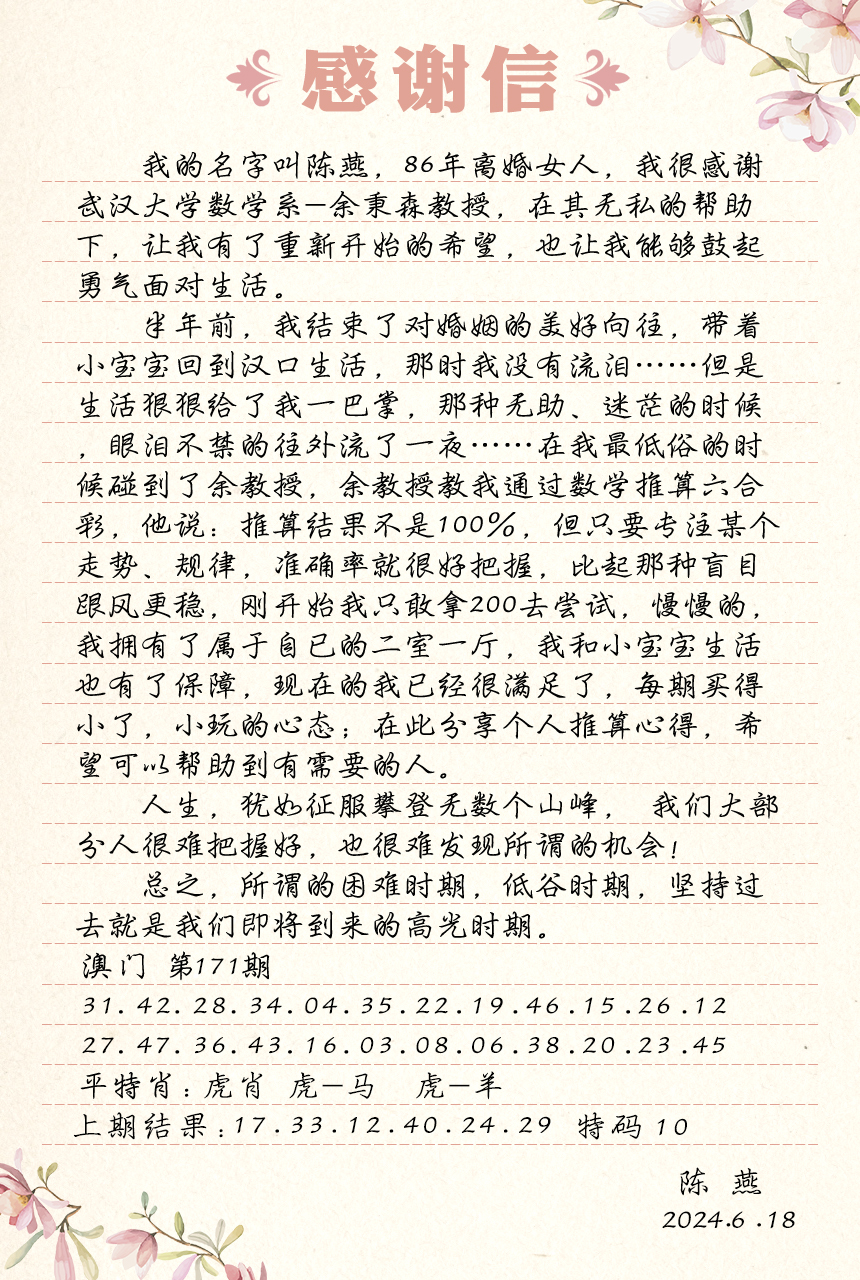 感谢信
我的名字叫陈燕，86年离婚女人，我很感谢
武汉大学数学系—余秉森教授，在其无私的帮助
下，让我有了重新开始的希望，也让我能够鼓起
勇气面对生活。
半年前，我结束了对婚姻的美好向往，带着
小宝宝回到汉口生活，那时我没有流泪……但是
生活狠狠给了我一巴掌，那种无助、迷茫的时候
，眼泪不禁的往外流了一夜……在我最低俗的时
候碰到了余教授，余教授教我通过数学推算六合
彩，他说：推算结果不是100%，但只要专注某个
走势、规律，准确率就很好把握，比起那种盲目
跟风更稳，刚开始我只敢拿200去尝试，慢慢的，
我拥有了属于自己的二室一厅，我和小宝宝生活
也有了保障，现在的我已经很满足了，每期买得
小了，小玩的心态；在此分享个人推算心得，希
望可以帮助到有需要的人。
人生，犹如征服攀登无数个山峰， 我们大部
分人很难把握好，也很难发现所谓的机会！
总之，所谓的困难时期，低谷时期，坚持过
去就是我们即将到来的高光时期。
澳门 第171期
31.42.28.34.04.35.22.19.46.15.26.12
27.47.36.43.16.03.08.06.38.20.23.45
平特肖：虎肖 虎—马 虎—羊
上期结果：17.33.12.40.24.29 特码 10
陈 燕
2024.6.18